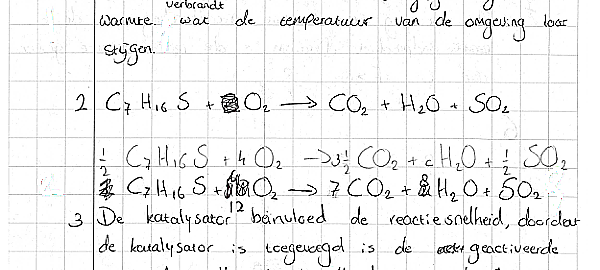 verbrandt
warmte. wat de temperatuur van de omgeving laat
stijgen.
2 C7 H16 S + O2 → CO2 + H2O + SO2
1/2 C7H16S + 4 O2 → 3 1/2 CO2 + c H2O + 1/2 SO2
C7H16S + O2 → 7 CO2 + 8 H2O + SO2
12
3 De katalysator beinvloed de reactiesnelheid, doordat
de katalysator is toegevoegd is de geactiveerde